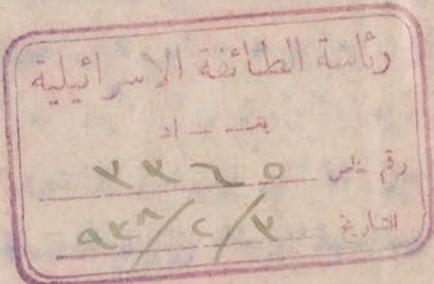 رئاسة الطائفة الاسرائيلية
بغــداد
رقم خاص ٣٣٦٥
التاريخ ٣/٢/٩٣٨